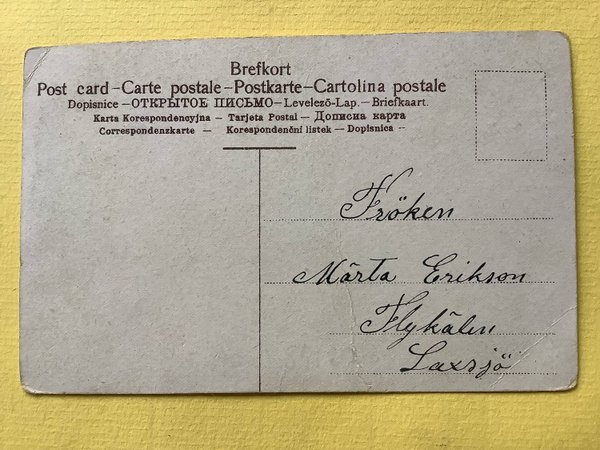 Brefkort
Post card – Carte postale – Postkarte – Cartolina postale
Dopisnice – ОТКРЫТОЕ ПИСЬМО – Levelező-Lap. – Briefkaart.
Karta Korespondencyjna – Tarjeta Postal – Дописна карта
Correspondenzkarte – Korespondenční listek – Dopisnica –
Fröken
Märta Erikson
Flykälen
Laxsjö